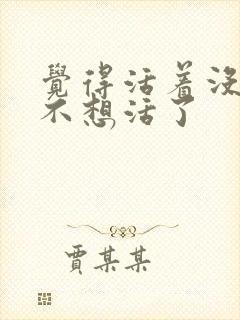 覺得活着沒
不想活了
賈某某